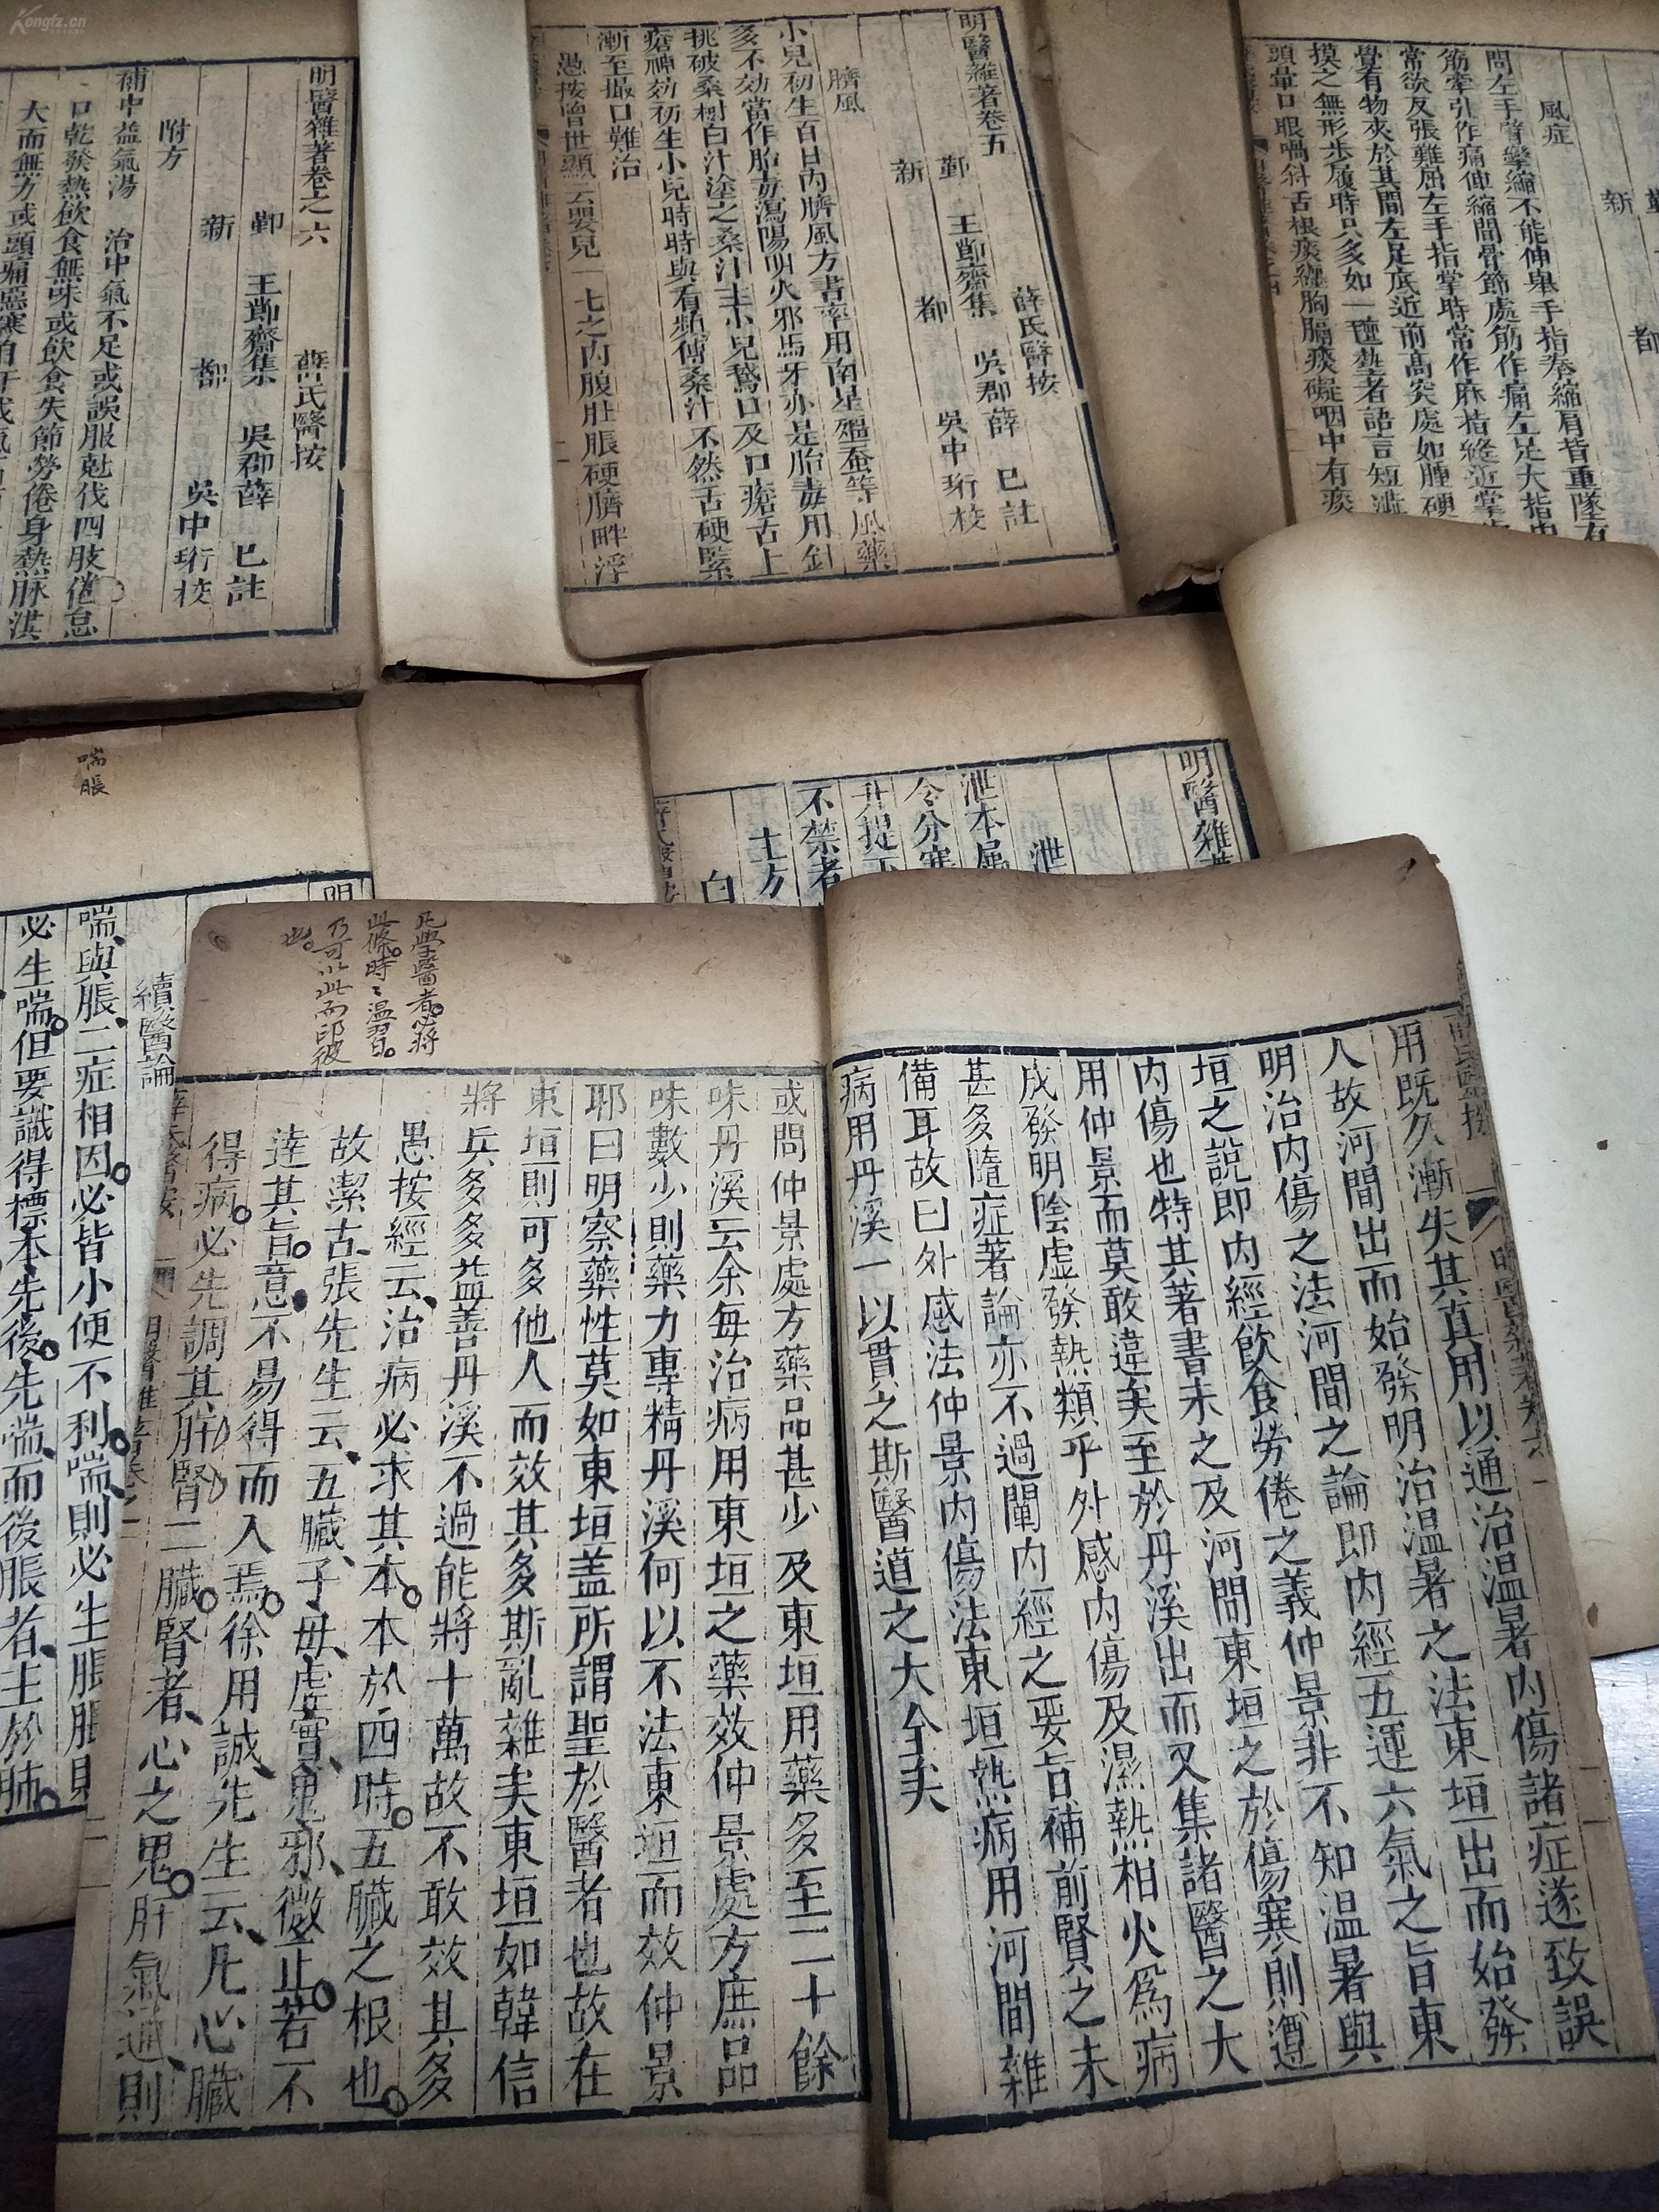 Kongfz.cn
明醫雜著卷之六
薛氏醫按
鄞 王節齋集 吳郡薛 已註
新 都 吳中珩校
附方
補中益氣湯 治中氣不足或誤服尅伐四肢倦怠
口乾發熱飲食無味或飲食失節勞倦身熱脉洪
大而無力或頭痛惡寒自汗
明醫雜著卷五
薛氏醫按
鄞 王節齋集 吳郡薛 已註
新 都 吳中珩校
臍風
小兒初生百日內臍風方書率用南星殭蚕等風藥
多不効當作胎毒瀉陽明火邪馬牙亦是胎毒用針
挑破桑樹白汁塗之桑汁主小兒鵝口及口瘡舌上
瘡神効初生小兒時時與看頻傅桑汁不然舌硬緊
漸至撮口難治
愚按曾世顯云嬰兒一七之內腹肚脹硬臍畔浮
新 都
風症
問左手臂攣縮不能伸舉手指拳縮肩背重墜有
筋牽引作痛伸縮間骨節處筋作痛左足大指
常欲反張難屈左手指掌時常作麻指縫近掌
覺有物夾於其間左足底近前高突處如腫硬
摸之無形步履時只多如一種墊者語言短澁
頭暈口眼喎斜舌根痰纏胸膈痰礙咽中有痰
喘脹
續醫論
喘與脹二症相因必皆小便不利喘則必生脹脹則
必生喘但要識得標本先後先喘而後脹者主於肺
明醫雜
泄
泄本屬
令分寒
升提下
不禁者
土方
白
用既久漸失其真用以通治温暑內傷諸症遂致誤
人故河間出而始發明治温暑之法東垣出而始發
明治內傷之法河間之論即內經五運六氣之旨東
垣之說即內經飲食勞倦之義仲景非不知温暑與
內傷也特其著書未之及河間東垣之於傷寒則遵
用仲景而莫敢違矣至於丹溪出而又集諸醫之大
成發明陰虛發熱類乎外感內傷及濕熱相火爲病
甚多隨症著論亦不過闡內經之要旨補前賢之未
備耳故曰外感法仲景內傷法東垣熱病用河間雜
病用丹溪一以貫之斯醫道之大全矣
凡學醫者必將
此條時〻温習
乃可以此而印彼
也
或問仲景處方藥品甚少及東垣用藥多至二十餘
味丹溪云余每治病用東垣之藥效仲景處方庶品
味數少則藥力專精丹溪何以不法東垣而效仲景
耶曰明察藥性莫如東垣盖所謂聖於醫者也故在
東垣則可多他人而效其多斯亂雜矣東垣如韓信
將兵多多益善丹溪不過能將十萬故不敢效其多
愚按經云治病必求其本本於四時五臟之根也
故潔古張先生云五臟子母虛實鬼邪微正若不
達其旨意不易得而入焉徐用誠先生云凡心臟
得病必先調其肝腎二臟腎者心之鬼肝氣通則